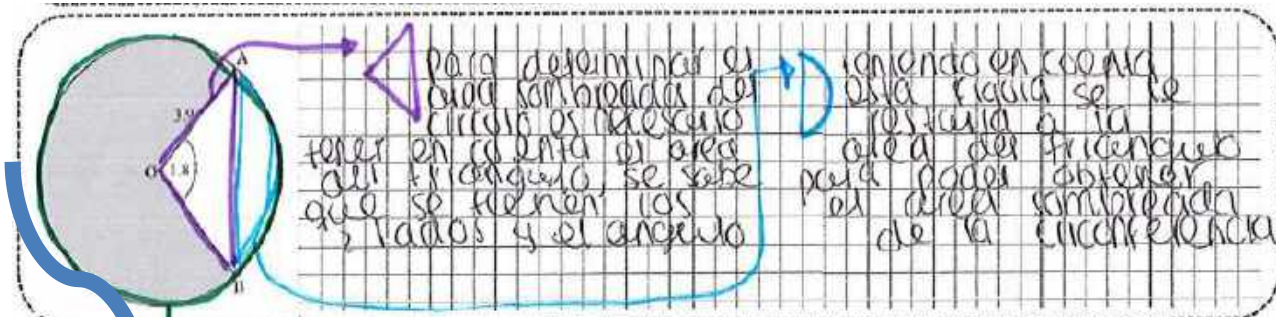 A
3.9
O
1.8
B
para determinar el
area sombreada del
circulo es necesario
tener en cuenta el area
del triangulo, se sabe
que se tienen los
lados y el angulo
teniendo en cuenta
esta figura se le
restaria a la
area del triangulo
para poder obtener
el area sombreada
de la circonferencia